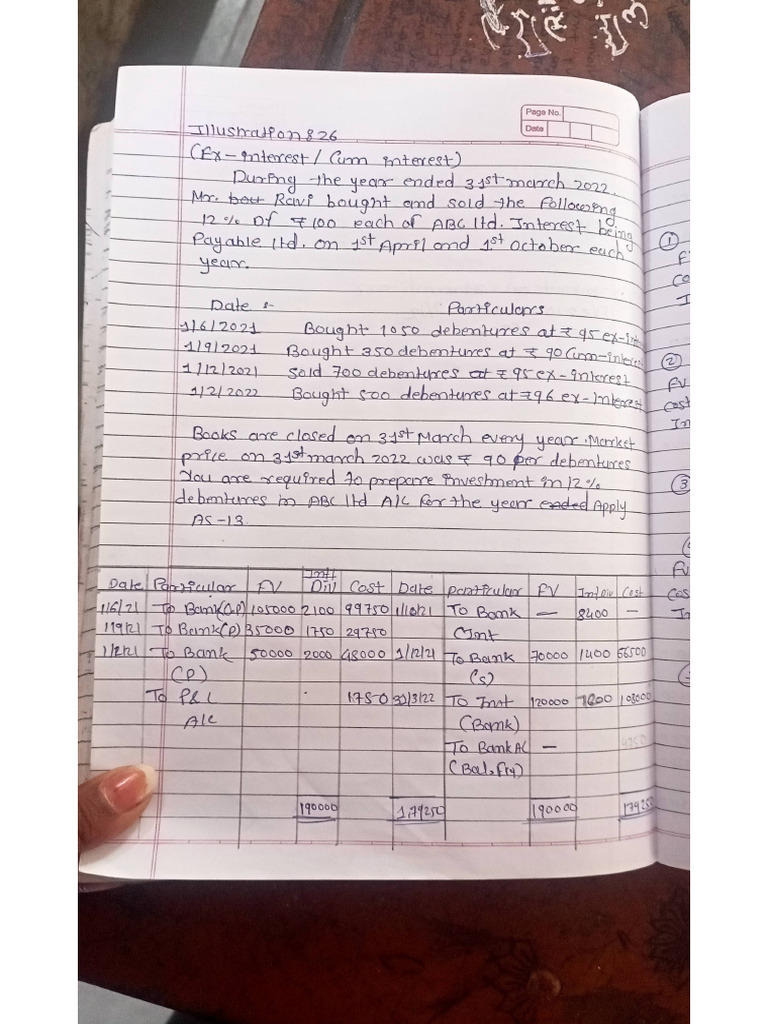 Page No.
Date
Illustration 826
(Ex-interest / Cum interest)
During the year ended 31st march 2022.
Mr. Ravi bought and sold the following
12% Of ₹100 each of ABC ltd. Interest being
Payable ltd. on 1st April and 1st October each
year.
Date :- Particulars
1/6/2021 Bought 1050 debentures at ₹ 95 ex-int
1/9/2021 Bought 350 debentures at ₹ 90 Cum-interes
1/12/2021 Sold 700 debentures at ₹95 ex-interest
1/2/2022 Bought 500 debentures at ₹96 ex-interest
Books are closed on 31st March every year. Market
price on 31st march 2022 was ₹ 90 per debentures
You are required to prepare investment in 12%
debentures in ABC ltd A/C for the year ended Apply
AS-13.
Date Particular FV Int/Div Cost Date particular FV Int Div Cost
1/6/21 To Bank(P) 105000 2100 99750 1/10/21 To Bank — 8400 —
1/9/21 To Bank(P) 35000 1750 29750 Int
1/2/21 To Bank 50000 2000 48000 1/12/21 To Bank 70000 1400 66500
(P) (S)
To P&L 1750 31/3/22 To Inst 120000 108000
A/C (Bank)
To Bank AC — 4750
(Bal. Fig)
190000 1,79250 190000 179250
①
F
Co
I
②
FV
Cost
In
③
FV
Cos
In